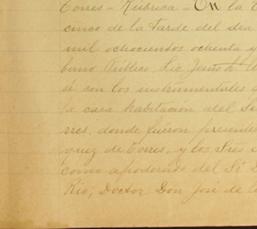 Torres - Rubrica - En la C
cinco de la tarde del dia
mil ochocientos ochenta y
bano Público, Lic
dó con los instrumentales q
la casa habitación del Se
rres, donde fueron presente
quez de Torres, y los Sres
como apoderado del Sr
Rio, Doctor Don José de la